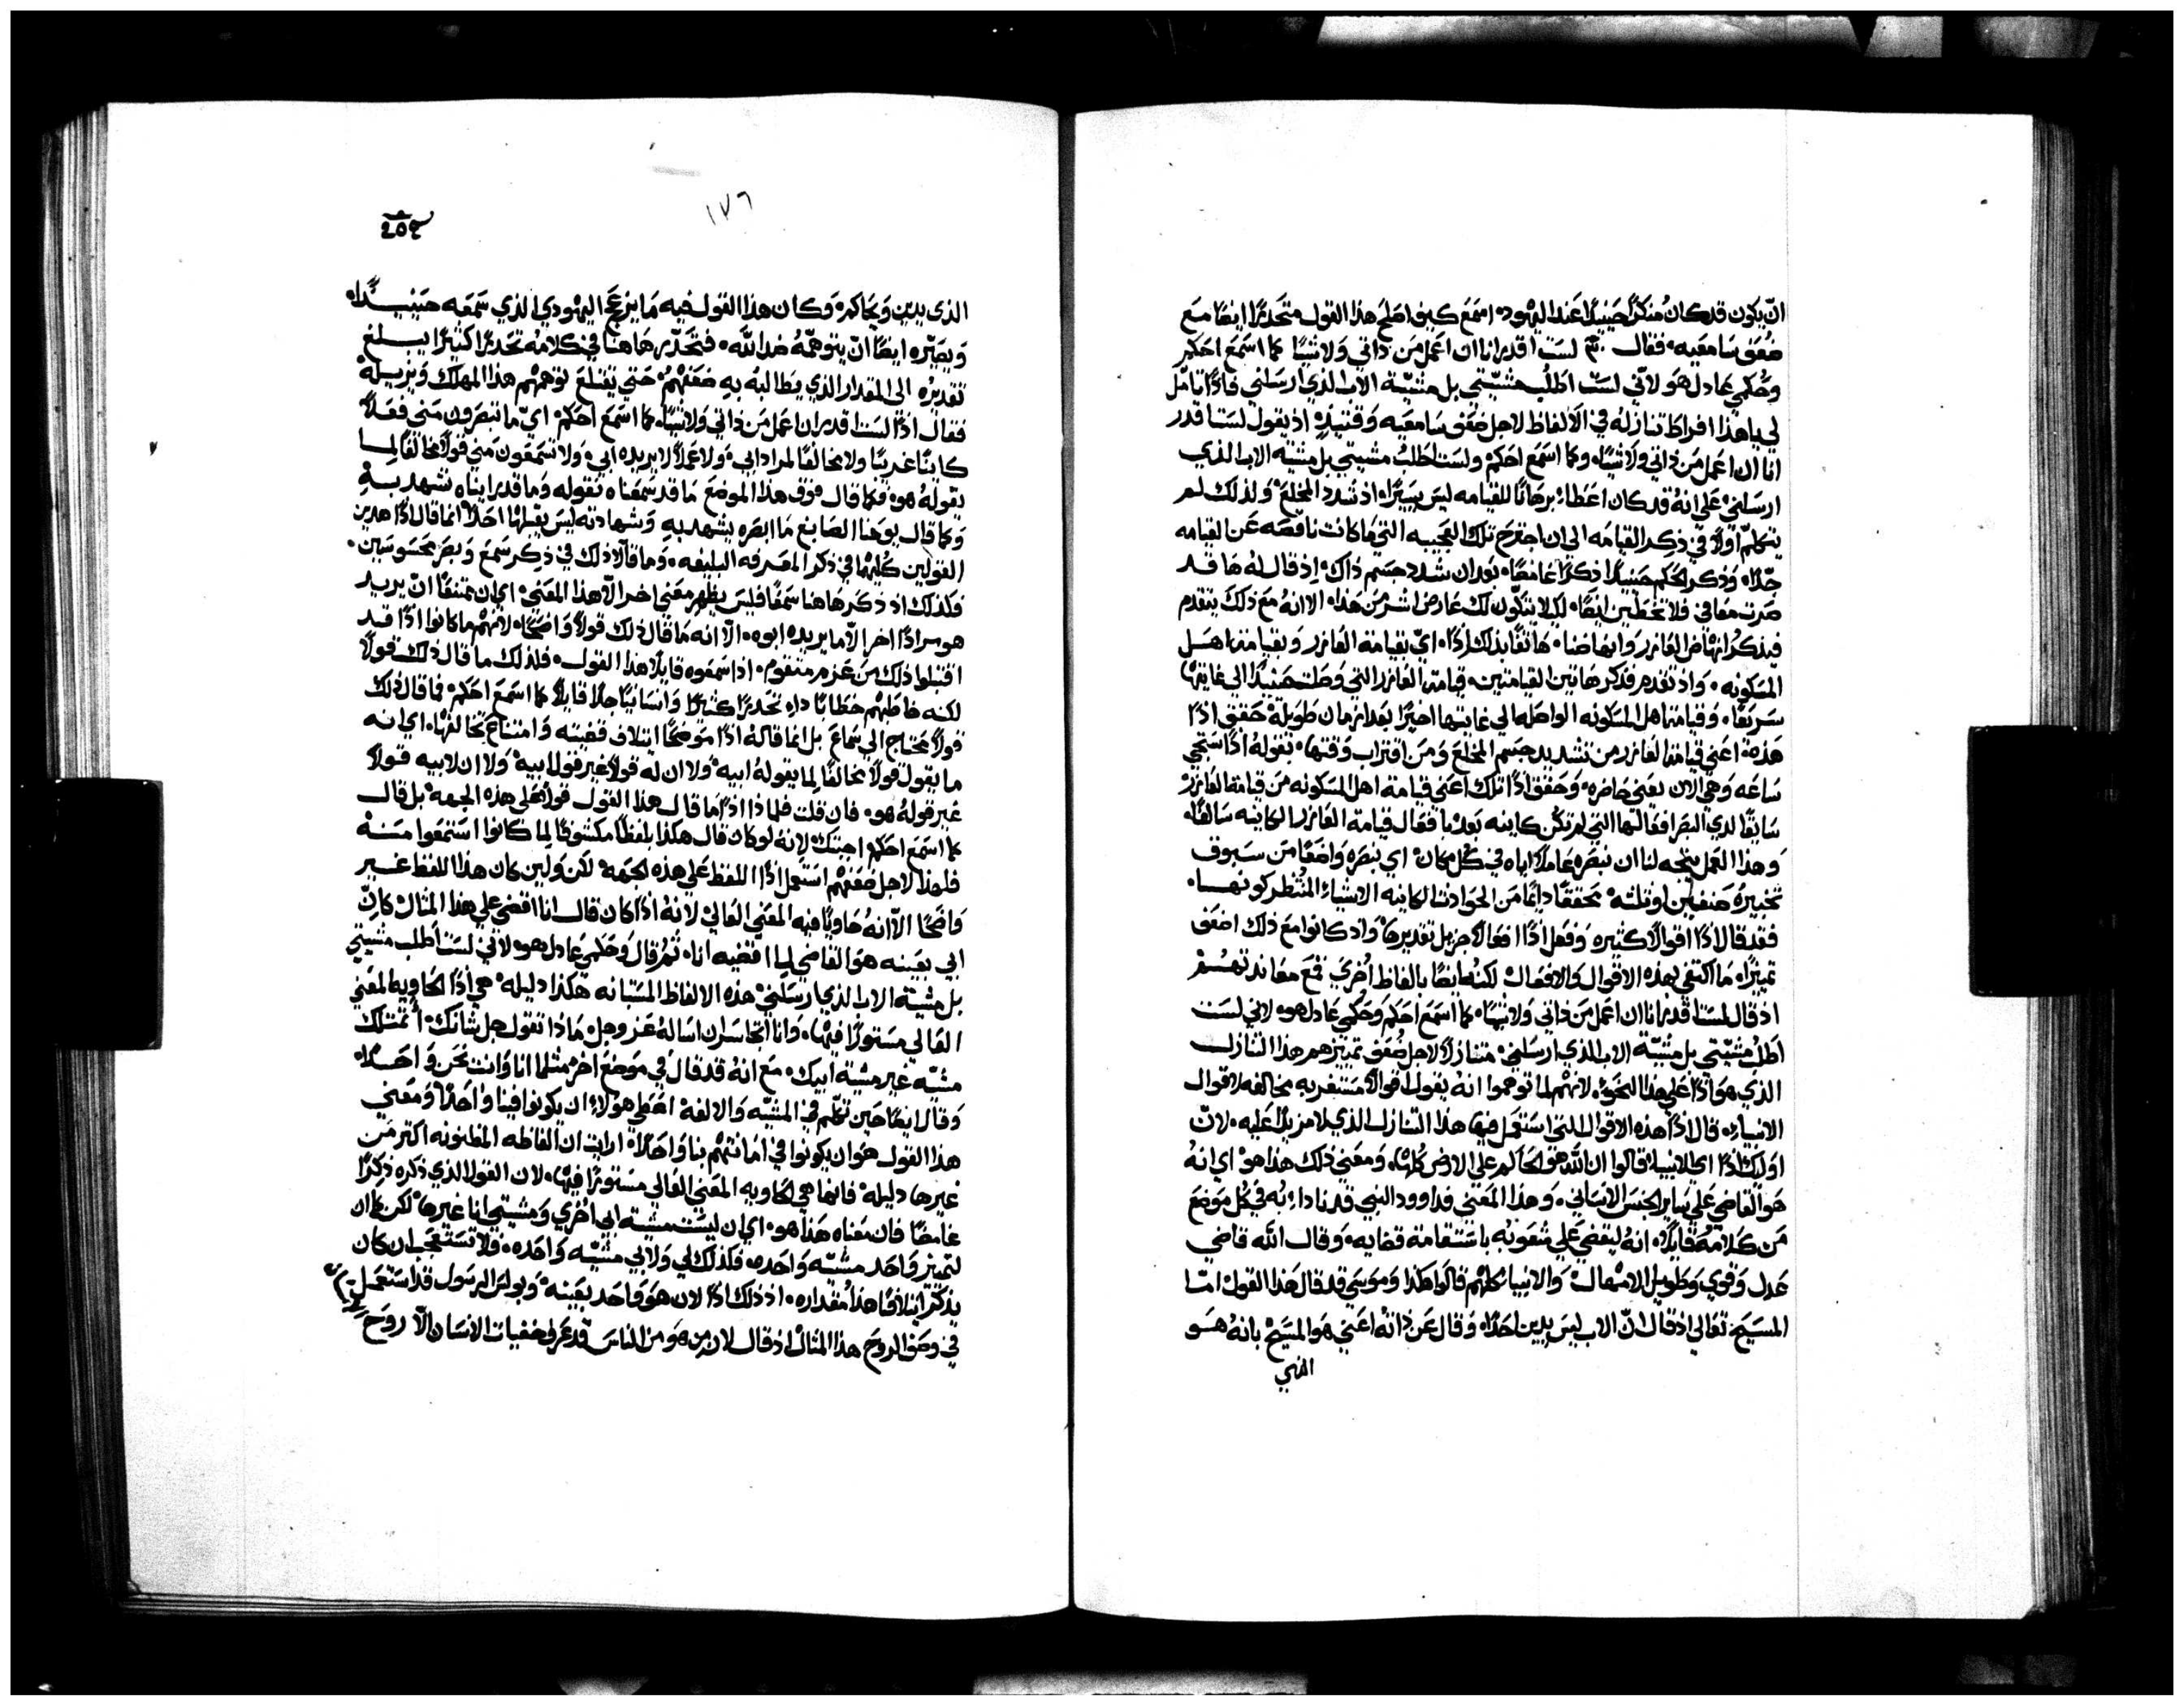 ان يكون قد كان منكرًا حينيدًا عند اليهود، اسمع كيف اصلح هذا القول متحذرًا ايضًا مع
ضعف سامعيه، فقال. لست اقدر انا ان اعمل من ذاتي ولا شيًا كما اسمع احكم
وحكمي عادل هو لانّي لست اطلب مشيّتي بل مشيّة الاب الذي ارسلني فاذًا تامّل
لي يا هذا افراط تنازله في الالفاظ لاجل ضعف سامعيه وقتيدٍ، اذ يقول لست اقدر
انا ان اعمل من ذاتي ولا شيًا، وكما اسمع احكم، ولست اطلب مشيتي بل مشيه الاب الذي
ارسلني، على انه قد كان اعطا برهانًا للقيامه ليس يسيرًا، اذ شدد المخلع، ولذلك لم
يتكلّم اولًا في ذكر القيامه الى ان اجترح تلك العجيبه التي ما كانت ناقصه عن القيامه
جدًا، وذكر الحكم حينيدًا ذكرًا غامضًا، بعد ان شدد جسم ذاك، اذ قال له ها قد
صرت معافي فلا تخطين ايضًا، لكيلا يتكّون لك عارض اشر من هذا، الا انه مع ذلك يتقدم
فيذكر انهاض العازر وانهاضنا، هاتفًا بذلك اذًا، اي بقيامة العازر وبقيامة اهل
المسكونه، واذ تقدم فذكر هاتين القيامتين، قيامة العازر التي وصلت حينيدًا الى غايتها
سريعًا، وقيامة اهل المسكونه الواصله الى غايتها اخيرًا بعد ازمان طويلة، حقق اذًا
هذه اعني قيامة العازر من تشديد جسم المخلع ومن اقتراب وقتها، بقوله اذًا ستجي
ساعه وهي الان يعني حاضره، وحقق اذًا تلك اعني قيامة اهل المسكونه من قيامة العازر
سابقًا لدي البصر افعالها التي لم تكن كاينه بعد، بافعال قيامة العازر الكاينه سالفًا،
وهذا العمل يتجه لنا ان نبصره عاملًا اياه في كل مكان، اي نبصره واضعًا من سبوف
تخبيره صنفين او ثلثه محققًا دايمًا من الحوادث الكاينه الاشياء المنتظر كونها.
فقد قال اذًا اقوالًا كثيره وفعل اذًا افعالًا جزيل تقديرها، واذ كانوا مع ذلك اضعف
تميزًا، ما اكتفى بهذه الاقوال والافعال لكنه ايضًا بالفاظ اخري قمع معاندتهم
اذ قال لست اقدر انا ان اعمل من ذاتي ولا شيًا، كما اسمع احكم وحكمي عادل هو، لاني لست
اطلب مشيّتي بل مشيّة الاب الذي ارسلني، متنازلًا لاجل ضعف تميزهم هذا التنازل
الذي هو اذًا على هذا النحو، لانهم لما توهموا انه يقول اقوالًا مستغربه مخالفه لاقوال
الانبياء، قال اذًا هذه الاقوال التي استعمل فيها هذا التنازل الذي لا مزيد عليه، لانّ
اوليك اذًا اي الانبيا قالوا ان الله هو الحاكم على الارض كلها، ومعني ذلك هذا هو، اي انه
هو القاضي على ساير الجنس الانساني، وهذا المعني فداوود النبي قد نادا به في كل موضع
من كلامه قايلًا، انه ليقضي على شعوبه باستقامة قضايه، وقال الله قاضي
عدل وقوي وطويل الامهال، والانبيا كلهم قالوا هكذا وموسي قد قال هذا القول، امّا
المسيح تعالي اذ قال انّ الاب ليس يدين احدًا، وقال عن ذاته اعني هو المسيح بانه هو
الذي
١٧٦
الذي يدين ويحاكم، وكان هذا القول فيه ما يزعج اليهودي الذي سمعه حينيدًا،
ويصيّره ايضًا انّ يتوهمّه ضد اللّٰه، فتحذّر هاهنا في كلامه تحذيرًا كثيرًا يبلغ
تقديره الى المقدار الذي يطالبه به ضعفهم، حتى يقتلع توهمهم هذا المهلك ويزيله
فقال اذًا لست اقدر ان اعمل من ذاتي ولا شيًا، كما اسمع احكم، ايّ ما تبصرون مني فعلًا
كاينًا غريبًا ولا مخالفًا لمراد ابي، ولا عملًا لا يريده ابي، ولا تسمعون مني قولًا مخالفًا لما
يقوله هو، فكما قال فوق هذا الموضع ما قد سمعناه نقوله وما قد راينا، نشهد به
وكما قال يوحنا الصابغ ما ابصره يشهد به وشهادته ليس يقبلها احدًا، انما قال اذًا هذين
القولين كليهما في ذكر المعرفه البليغه، وما قالا ذلك في ذكر سمع وبصر محسوسين.
فكذلك اذ ذكر هاهنا سمعًا فليس يظهر معني اخر الّا هذا المعني، اي ان ممتنعًا انّ يريد
هو مرادًا اخر الّا ما يريده ابوه، الّا انه ما قال ذلك قولًا واضحًا، لانهم ما كانوا اذًا قد
اقتبلوا ذلك من عزم متقوم، اذا سمعوه قايلًا هذا القول، فلذلك ما قال ذلك قولًا
لكنه خاطبهم خطابًا داء تحذيرًا كثيرًا وانسانيًا جدًا قايلًا كما اسمع احكم، فما قال ذلك
قولًا محتاج الى سماع بل انما قاله اذًا موضحًا ايتلاف قضيته وامتناع تخالفها، اي انه
ما يقول قولًا مخالفًا لما يقوله ابيه، ولا ان له قولًا غير قول ابيه، ولا ان لابيه قولًا
غير قوله هو، فان قلت فلماذا اذًا ما قال هذا القول قولًا على هذه الجهه، بل قال
كما اسمع احكم، اجبتك لانه لو كان قال هكذا بلفظًا مكشوفًا لما كانوا استمعوا منه
فلهذا لاجل ضعفهم استعمل اذًا اللفظ على هذه الجهه، لكن ولين كان هذا اللفظ غير
واضحًا الّا انه حاويًا فيه المعني العالي، لانه اذًا كان قال انا اقضي على هذا المثال كانّ
ابي بعينه هو القاضي لما اقضيه انا، ثم قال وحكمي عادل هو، لاني لست اطلب مشيتي
بل مشيّة الاب الذي ارسلني، هذه الالفاظ المستبانه هكذا دليله، هي اذًا الحاويه المعني
العالي مستورًا فيها، وانا اتجاسر ان اساله عز وجل، ماذا تقول جل شانك، اتمتلك
مشيّه غير مشيّة ابيك، مع انه قد قال في موضع اخر، مثلما انا وانت نحن واحدًا،
وقال ايضًا حين تكلّم في المشيّه والالفه، اعطي هولاء ان يكونوا فينا واحدًا، ومعني
هذا القول هو ان يكونوا في امانتهم بنا واحدًا، ارايت ان الفاظه المظنونه اكثر من
غيرها دليله، فانها هي الحاويه المعني العالي مستورًا فيها، لان القول الذي ذكره ذكرًا
غامضًا فان معناه هذا هو، اي ان ليست مشيّة ابي اخري ومشيتي انا غيرها، لكن كما ان
لتميز واحد مشيّه واحده، فكذلك لي ولابي مشيّه واحده، فلا تستعجب ان كان
يذكر ايتلافًا هذا مقداره، اذ ذلك اذًا لان هو واحد بعينه، وبولس الرسول قد استعمل
في وصف الروح هذا المثال اذ قال لان من هو من الناس قد عرف خفيات الانسان الّا روح